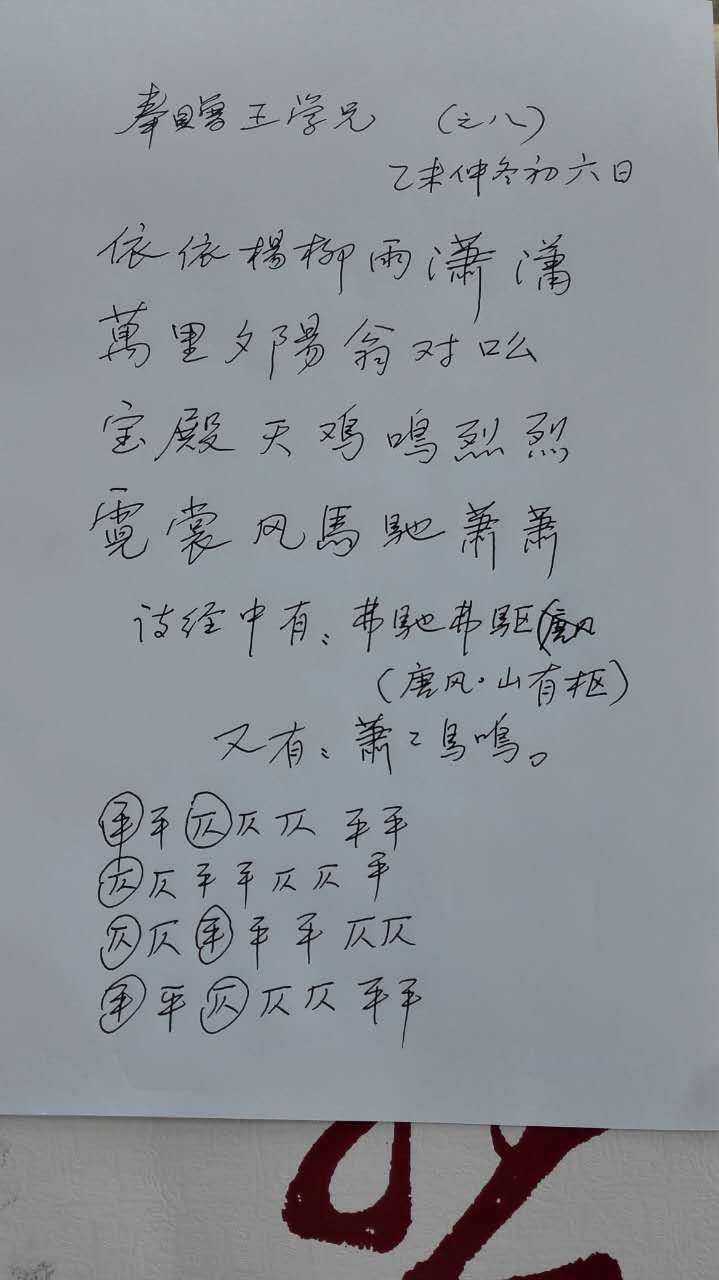 奉赠王学兄 （之八）
乙未仲冬初六日
依依楊柳雨潇潇
萬里夕陽翁对吆
宝殿天鸡鳴烈烈
霓裳风馬馳萧萧
诗经中有：弗馳弗駆
（唐风·山有枢）
又有：萧〻馬鳴。
平平仄仄仄平平
仄仄平平仄仄平
仄仄平平平仄仄
平平仄仄仄平平